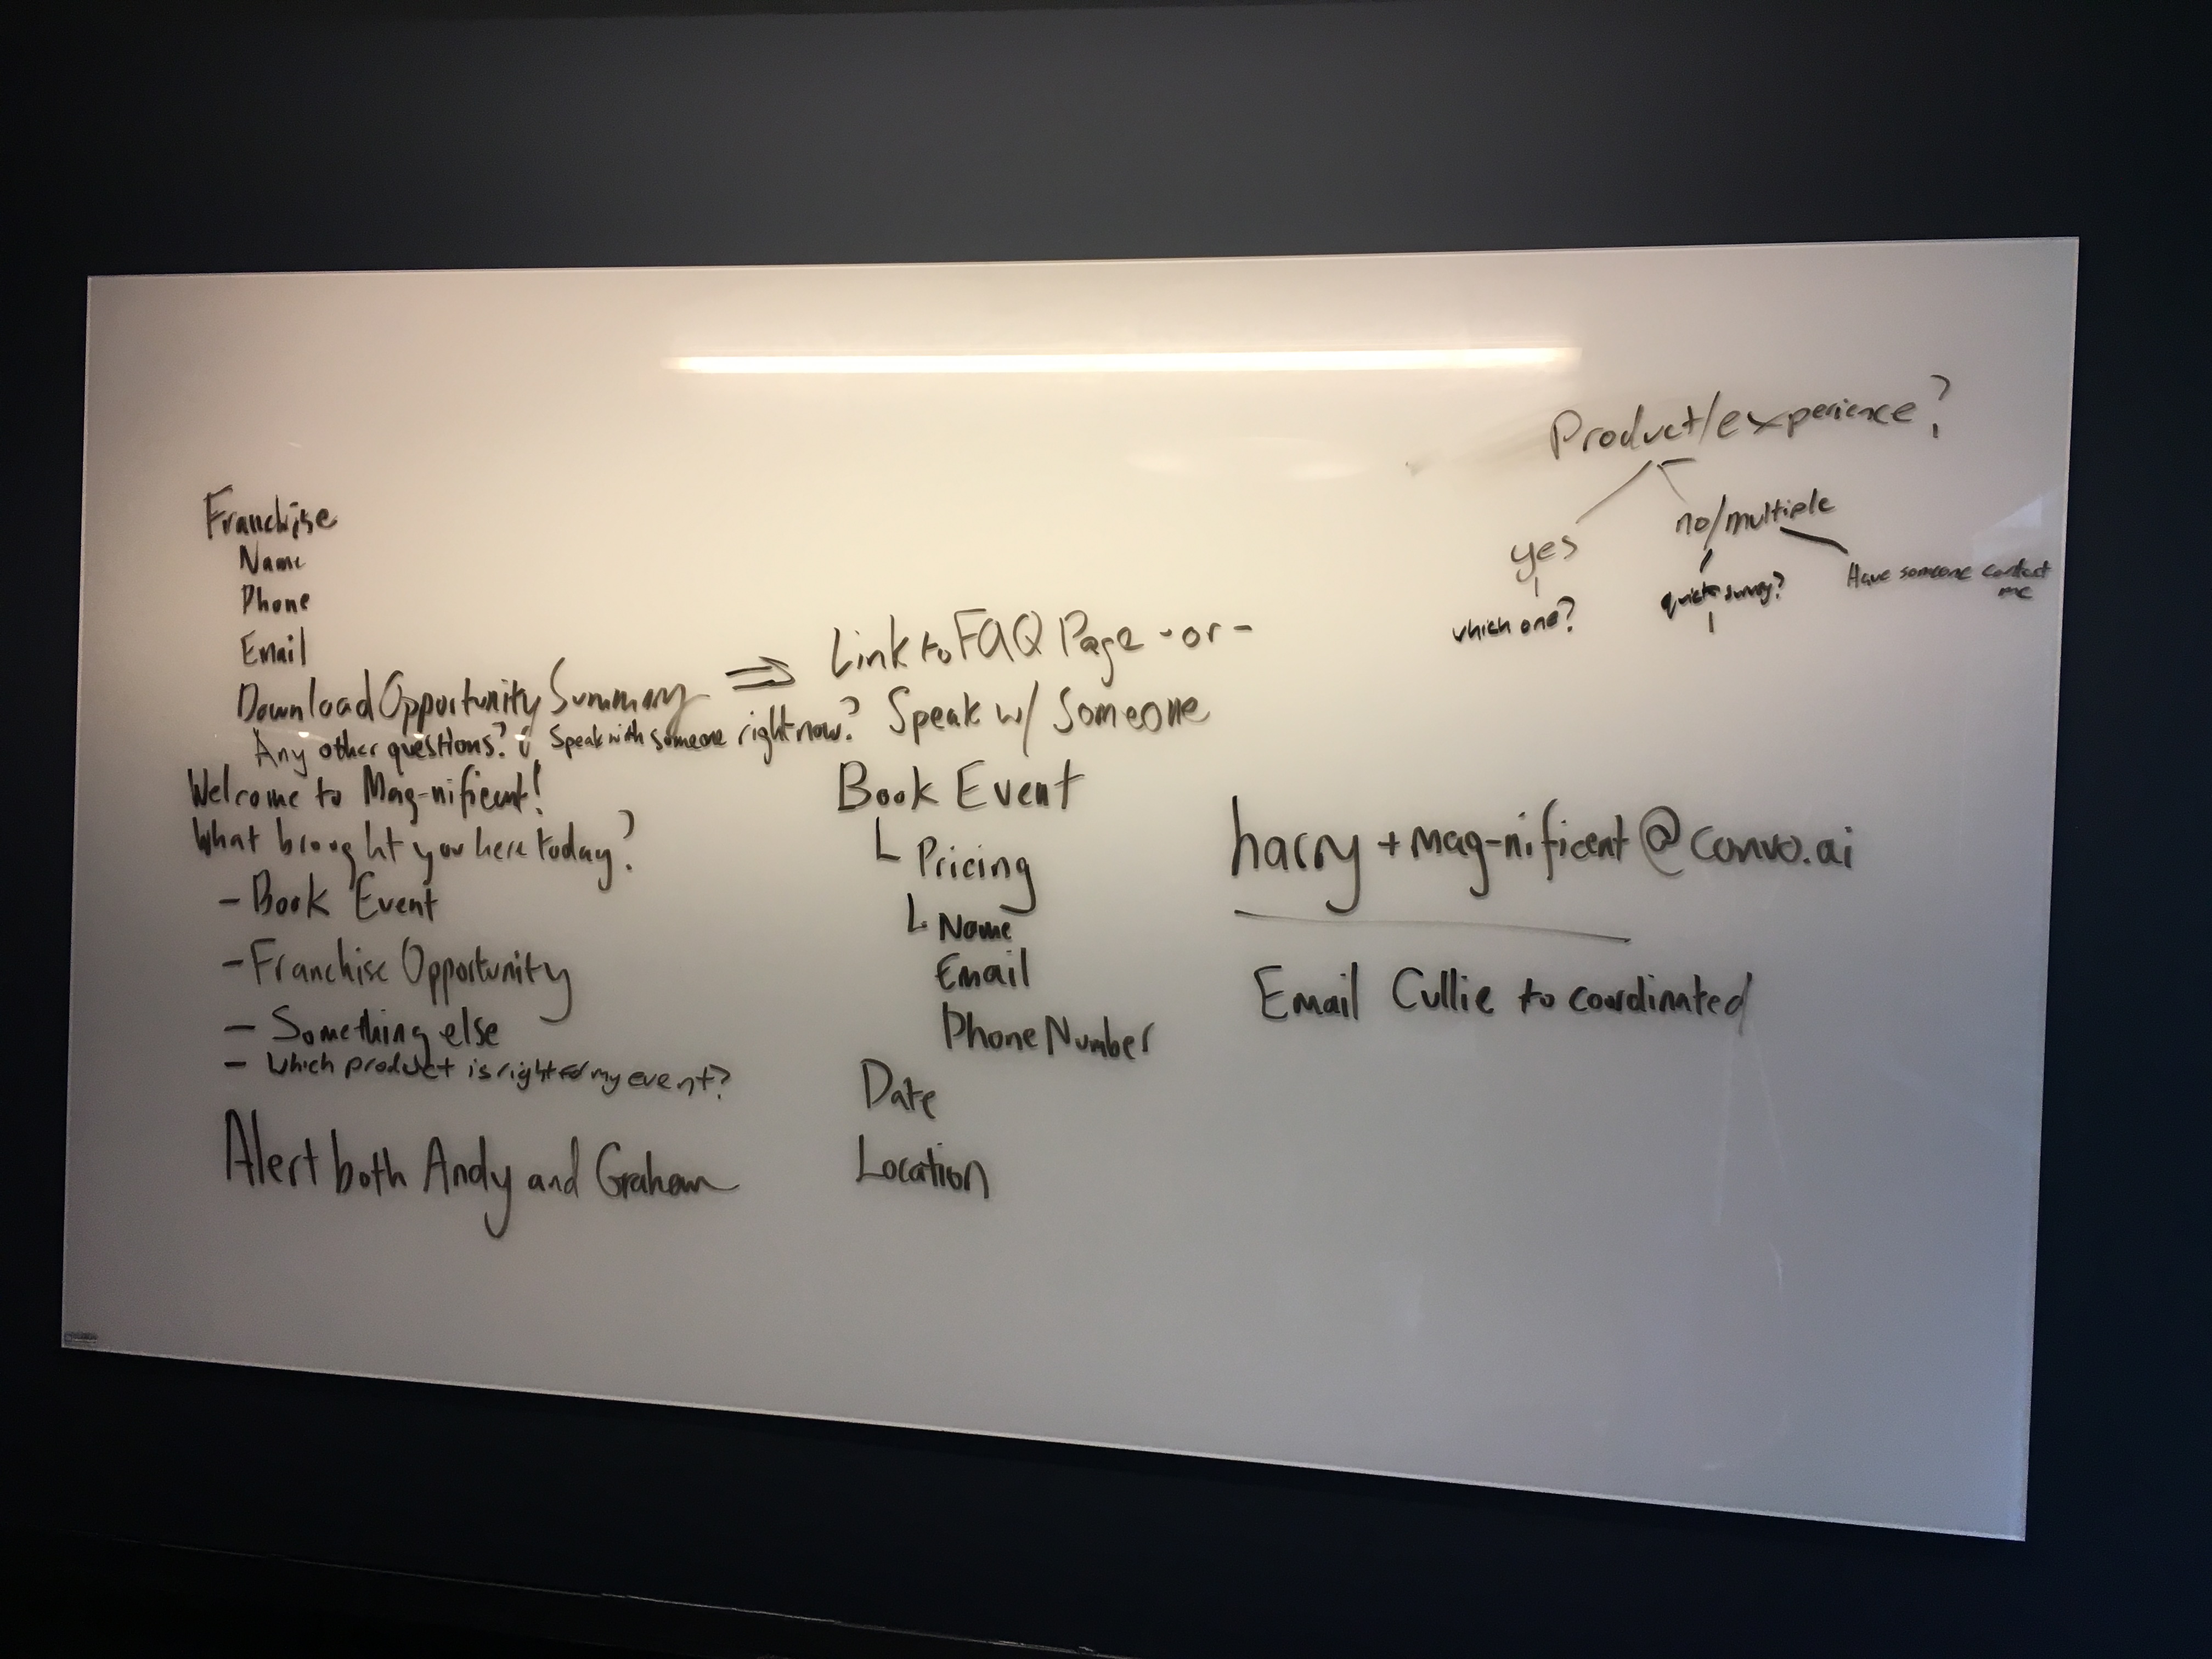 Franchise
Name
Phone
Email
Download Opportunity Summary ⇒
Any other questions? Speak with someone right now?
Welcome to Mag-nificent!
What brought you here today?
- Book Event
- Franchise Opportunity
- Something else
- Which product is right for my event?
Alert both Andy and Graham
Link to FAQ Page -or-
Speak w/ Someone
Book Event
Pricing
Name
Email
Phone Number
Date
Location
Product/experience?
yes
no/multiple
which one?
quick survey?
Have someone contact
me
harry+mag-nificent@convo.ai
Email Cullie to coordinated